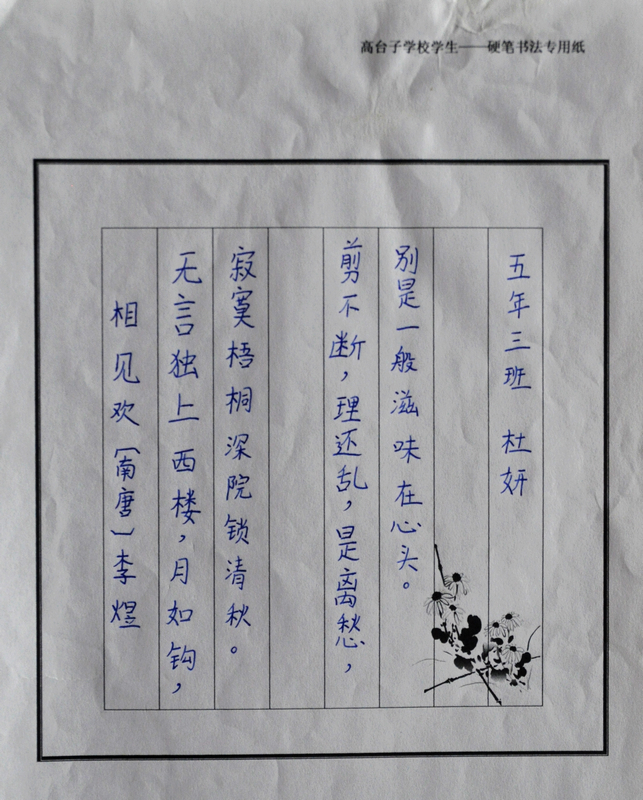 高台子学校学生——硬笔书法专用纸
相见欢（南唐）李煜
无言独上西楼，月如钩，
寂寞梧桐深院锁清秋。
剪不断，理还乱，是离愁，
别是一般滋味在心头。
五年三班 杜妍